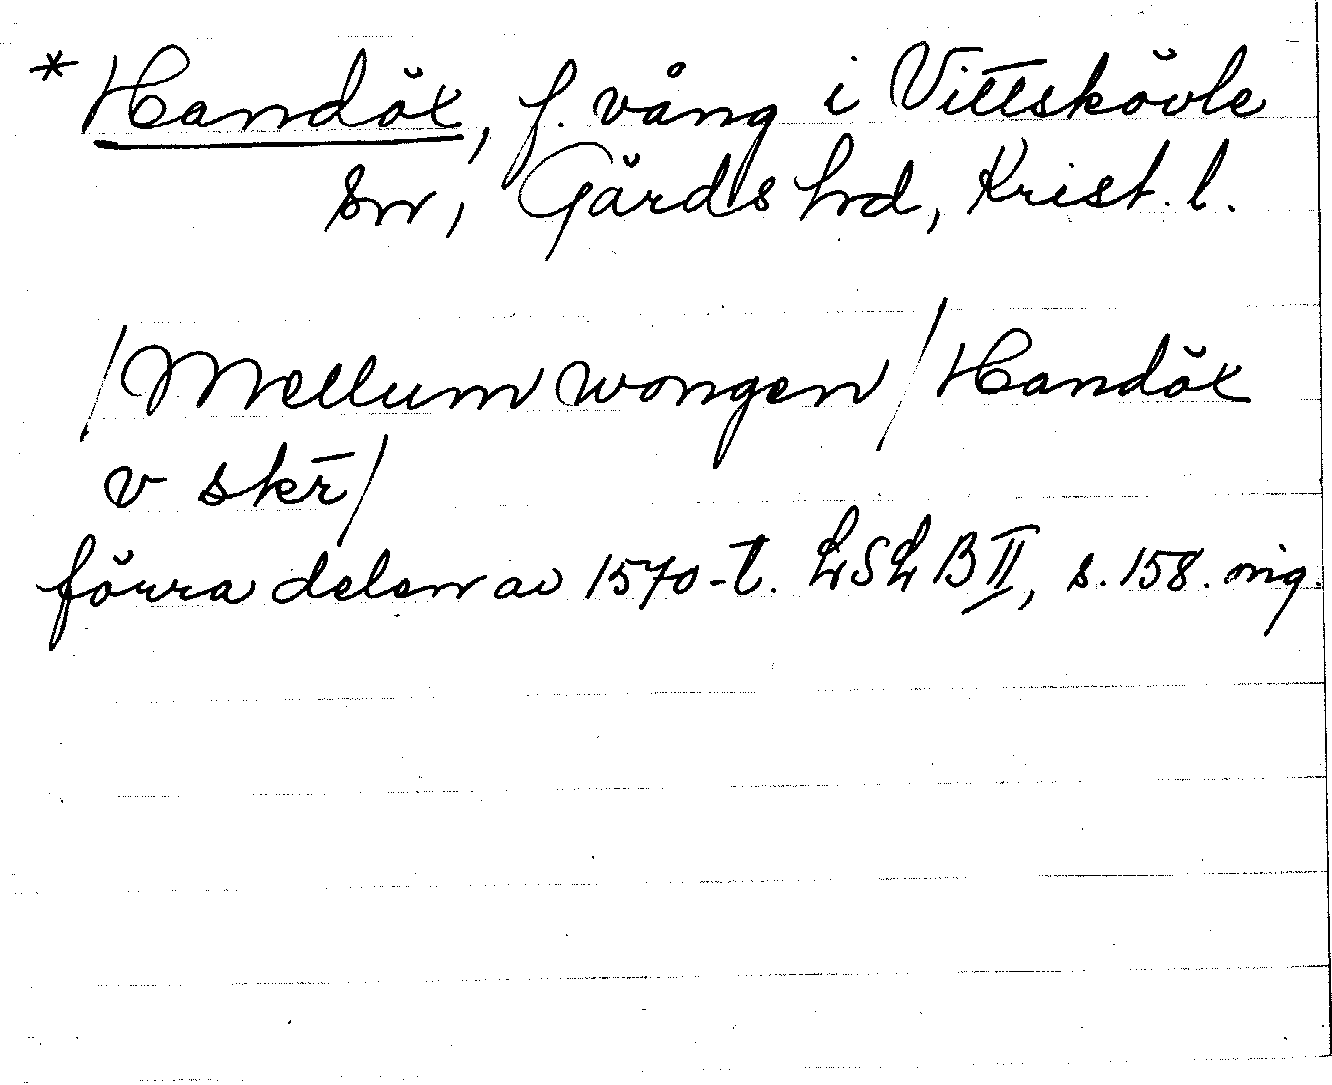 * Handöx, f. vång i Vittskövle
sn, Gärds hd, Krist. l.
/Mellum wongen/ Handöx
v skr̄/
förra delen av 1570-t. LSLB II, s. 158. orig.